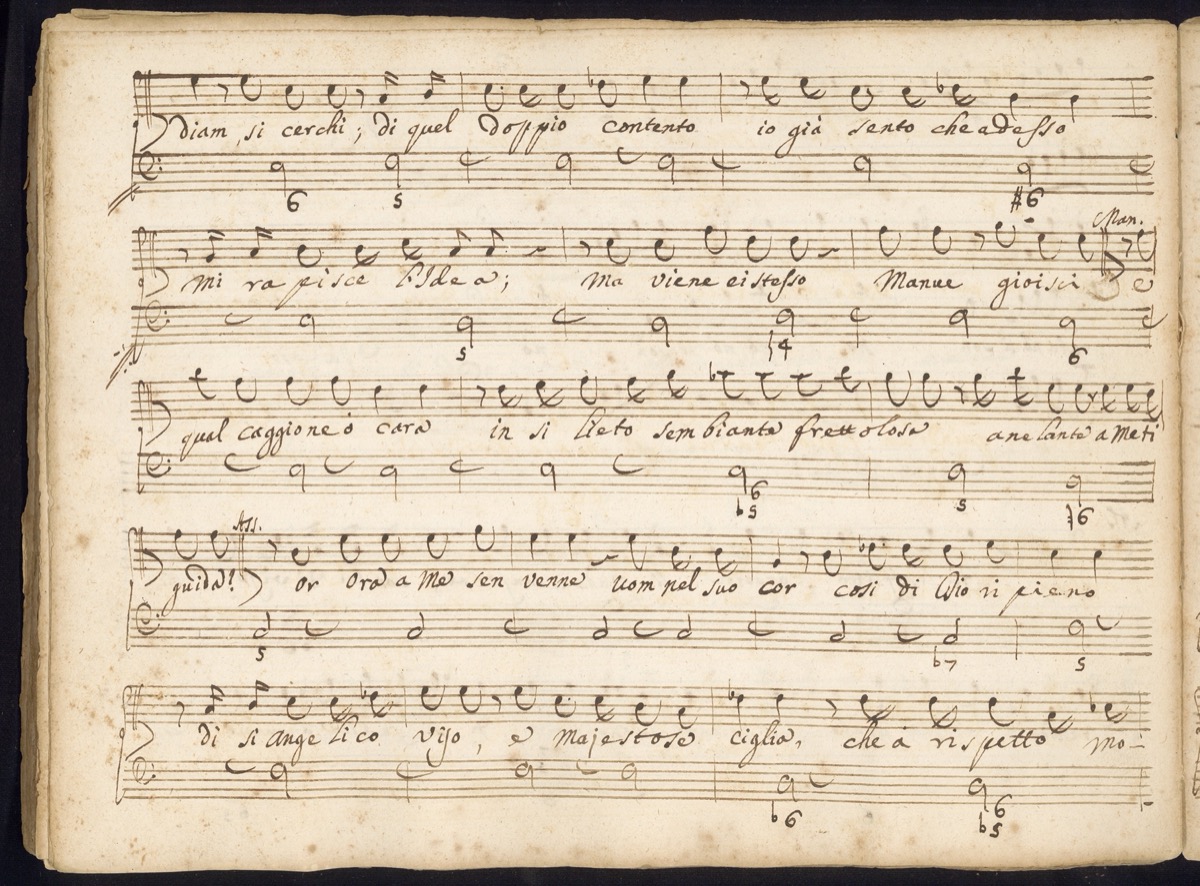 diam, si cerchi; di quel doppio contento io già sento che adesso
6 5 #6
Man.
mi rapisce l'Idea; ma viene ei stesso Manue gioisci e
5 ♮4 6
qual caggione ò cara in si lieto sembiante frettolosa anelante a me ti
6 ♭5 5 ♮6
Ass.
guida? or ora a me sen venne uom nel suo cor così di Dio ripieno
5 ♭7 5
di si angelico viso, e majestose ciglia, che a rispetto mo-
♭6 6 ♭5